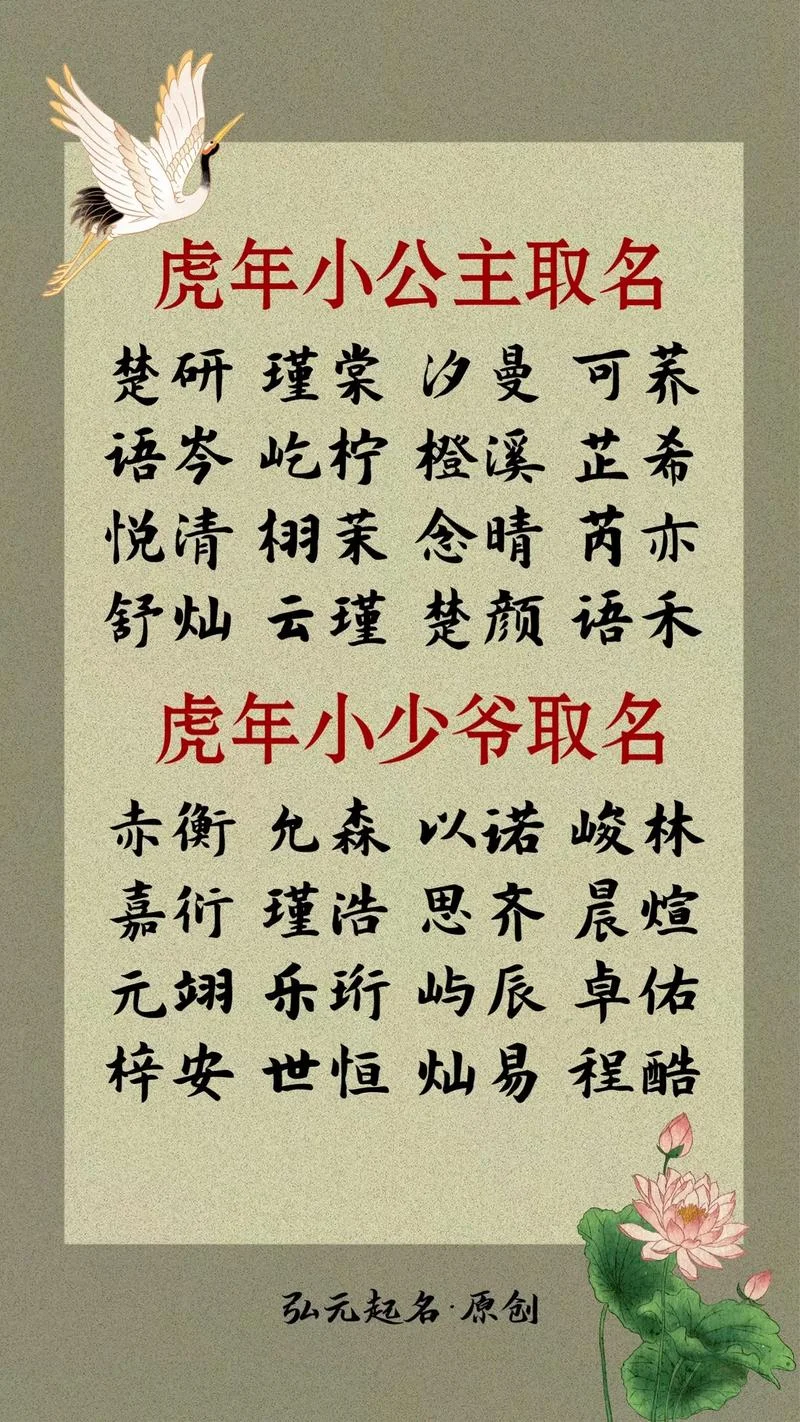 虎年小公主取名
楚研 瑾棠 汐曼 可荞
语岑 屹柠 橙溪 芷希
悦清 栩茉 念晴 芮亦
舒灿 云瑾 楚颜 语禾
虎年小少爷取名
赤衡 允森 以诺 峻林
嘉衍 瑾浩 思齐 晨煊
元翊 乐珩 屿辰 卓佑
梓安 世恒 灿易 程酷
弘元起名·原创